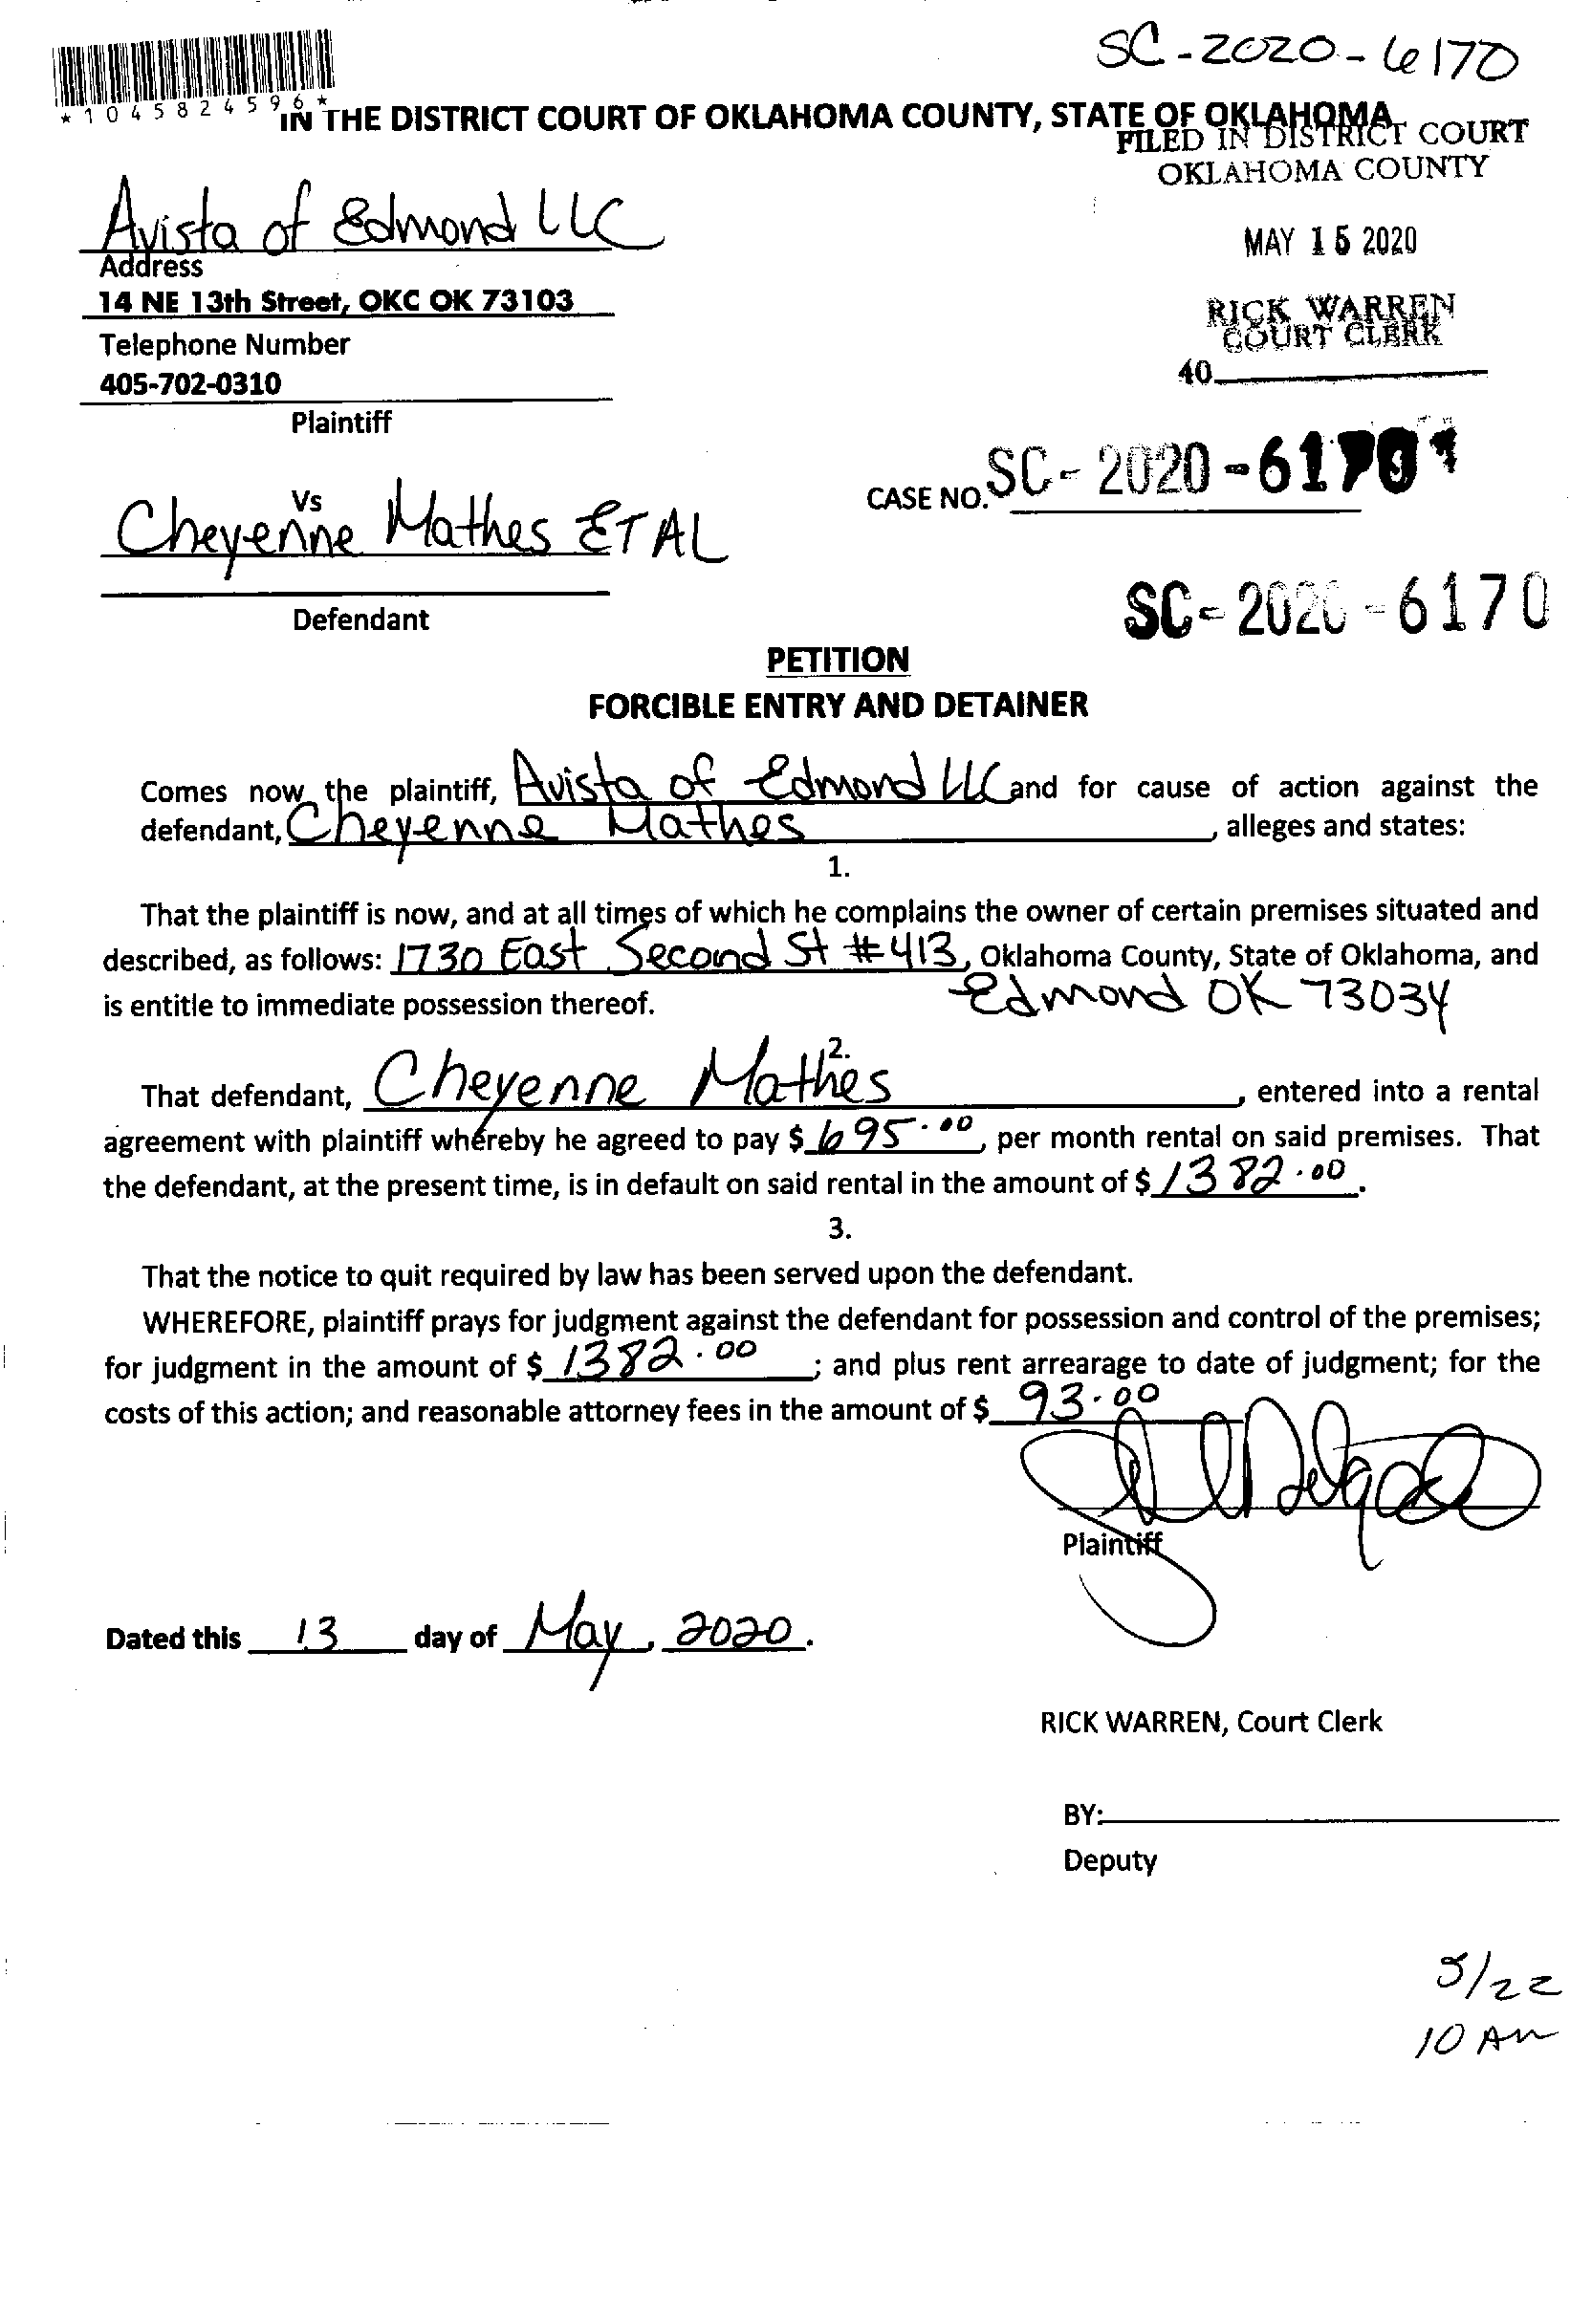 SC-2020-6170
*1045824596*
IN THE DISTRICT COURT OF OKLAHOMA COUNTY, STATE OF OKLAHOMA
FILED IN DISTRICT COURT
OKLAHOMA COUNTY
Avista of Edmond LLC
MAY 15 2020
Address
14 NE 13th Street, OKC OK 73103
RICK WARREN
COURT CLERK
Telephone Number
40
405-702-0310
Plaintiff
CASE NO. SC-2020-6170
Vs
Cheyenne Mathes ET AL
SC-2020-6170
Defendant
PETITION
FORCIBLE ENTRY AND DETAINER
Comes now the plaintiff, Avista of Edmond LLC and for cause of action against the
defendant, Cheyenne Mathes, alleges and states:
1.
That the plaintiff is now, and at all times of which he complains the owner of certain premises situated and
described, as follows: 1730 East Second St #413, Oklahoma County, State of Oklahoma, and
is entitle to immediate possession thereof. Edmond OK 73034
2.
That defendant, Cheyenne Mathes, entered into a rental
agreement with plaintiff whereby he agreed to pay $ 695.00, per month rental on said premises. That
the defendant, at the present time, is in default on said rental in the amount of $ 1382.00.
3.
That the notice to quit required by law has been served upon the defendant.
WHEREFORE, plaintiff prays for judgment against the defendant for possession and control of the premises;
for judgment in the amount of $ 1382.00; and plus rent arrearage to date of judgment; for the
costs of this action; and reasonable attorney fees in the amount of $ 93.00
Plaintiff
Dated this 13 day of May, 2020.
RICK WARREN, Court Clerk
BY:
Deputy
5/22
10 AM